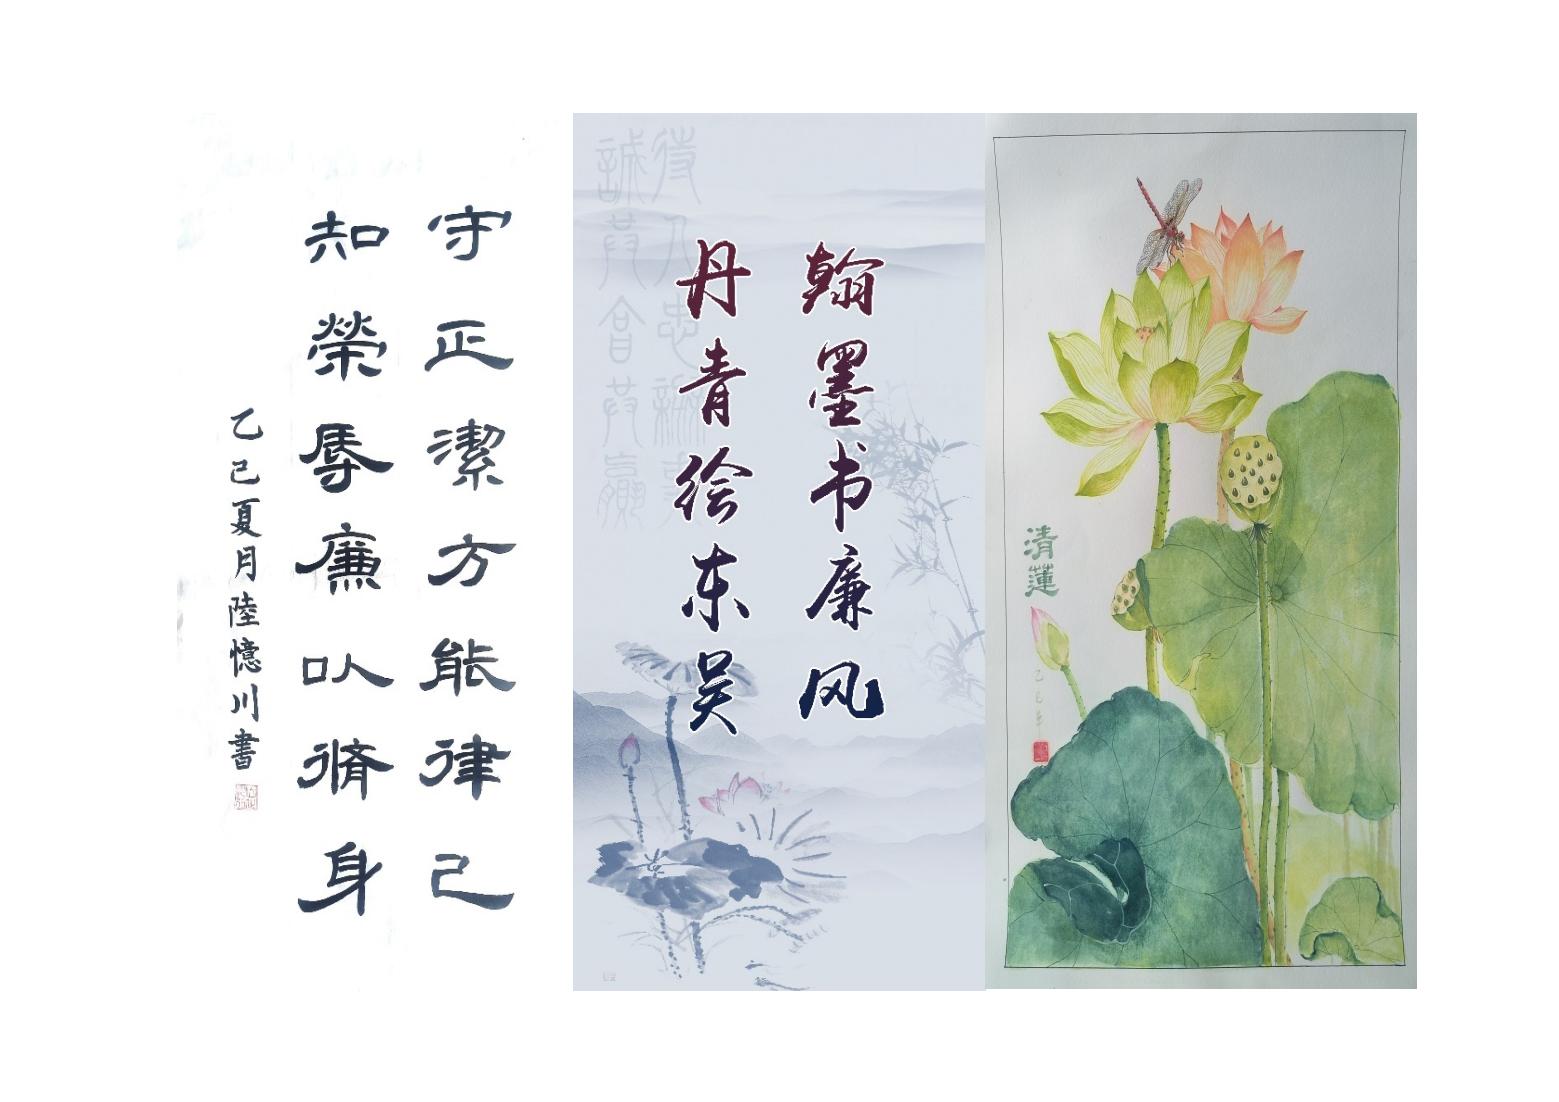 守正潔方能律己
知榮辱廉以脩身
乙巳夏月陸憶川書
翰墨书廉风
丹青绘东吴
清蓮
乙巳年